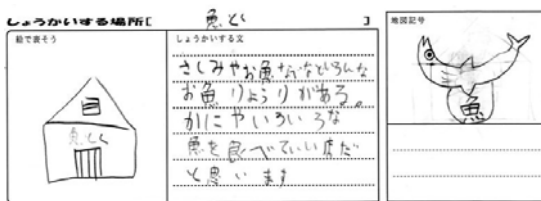 しょうかいする場所[ 魚とく ]
絵で表そう
魚とく
しょうかいする文
さしみやお魚
お魚りょうりがある。
かにやいろいろな
魚を食べていい店だ
と思います
地図記号
魚